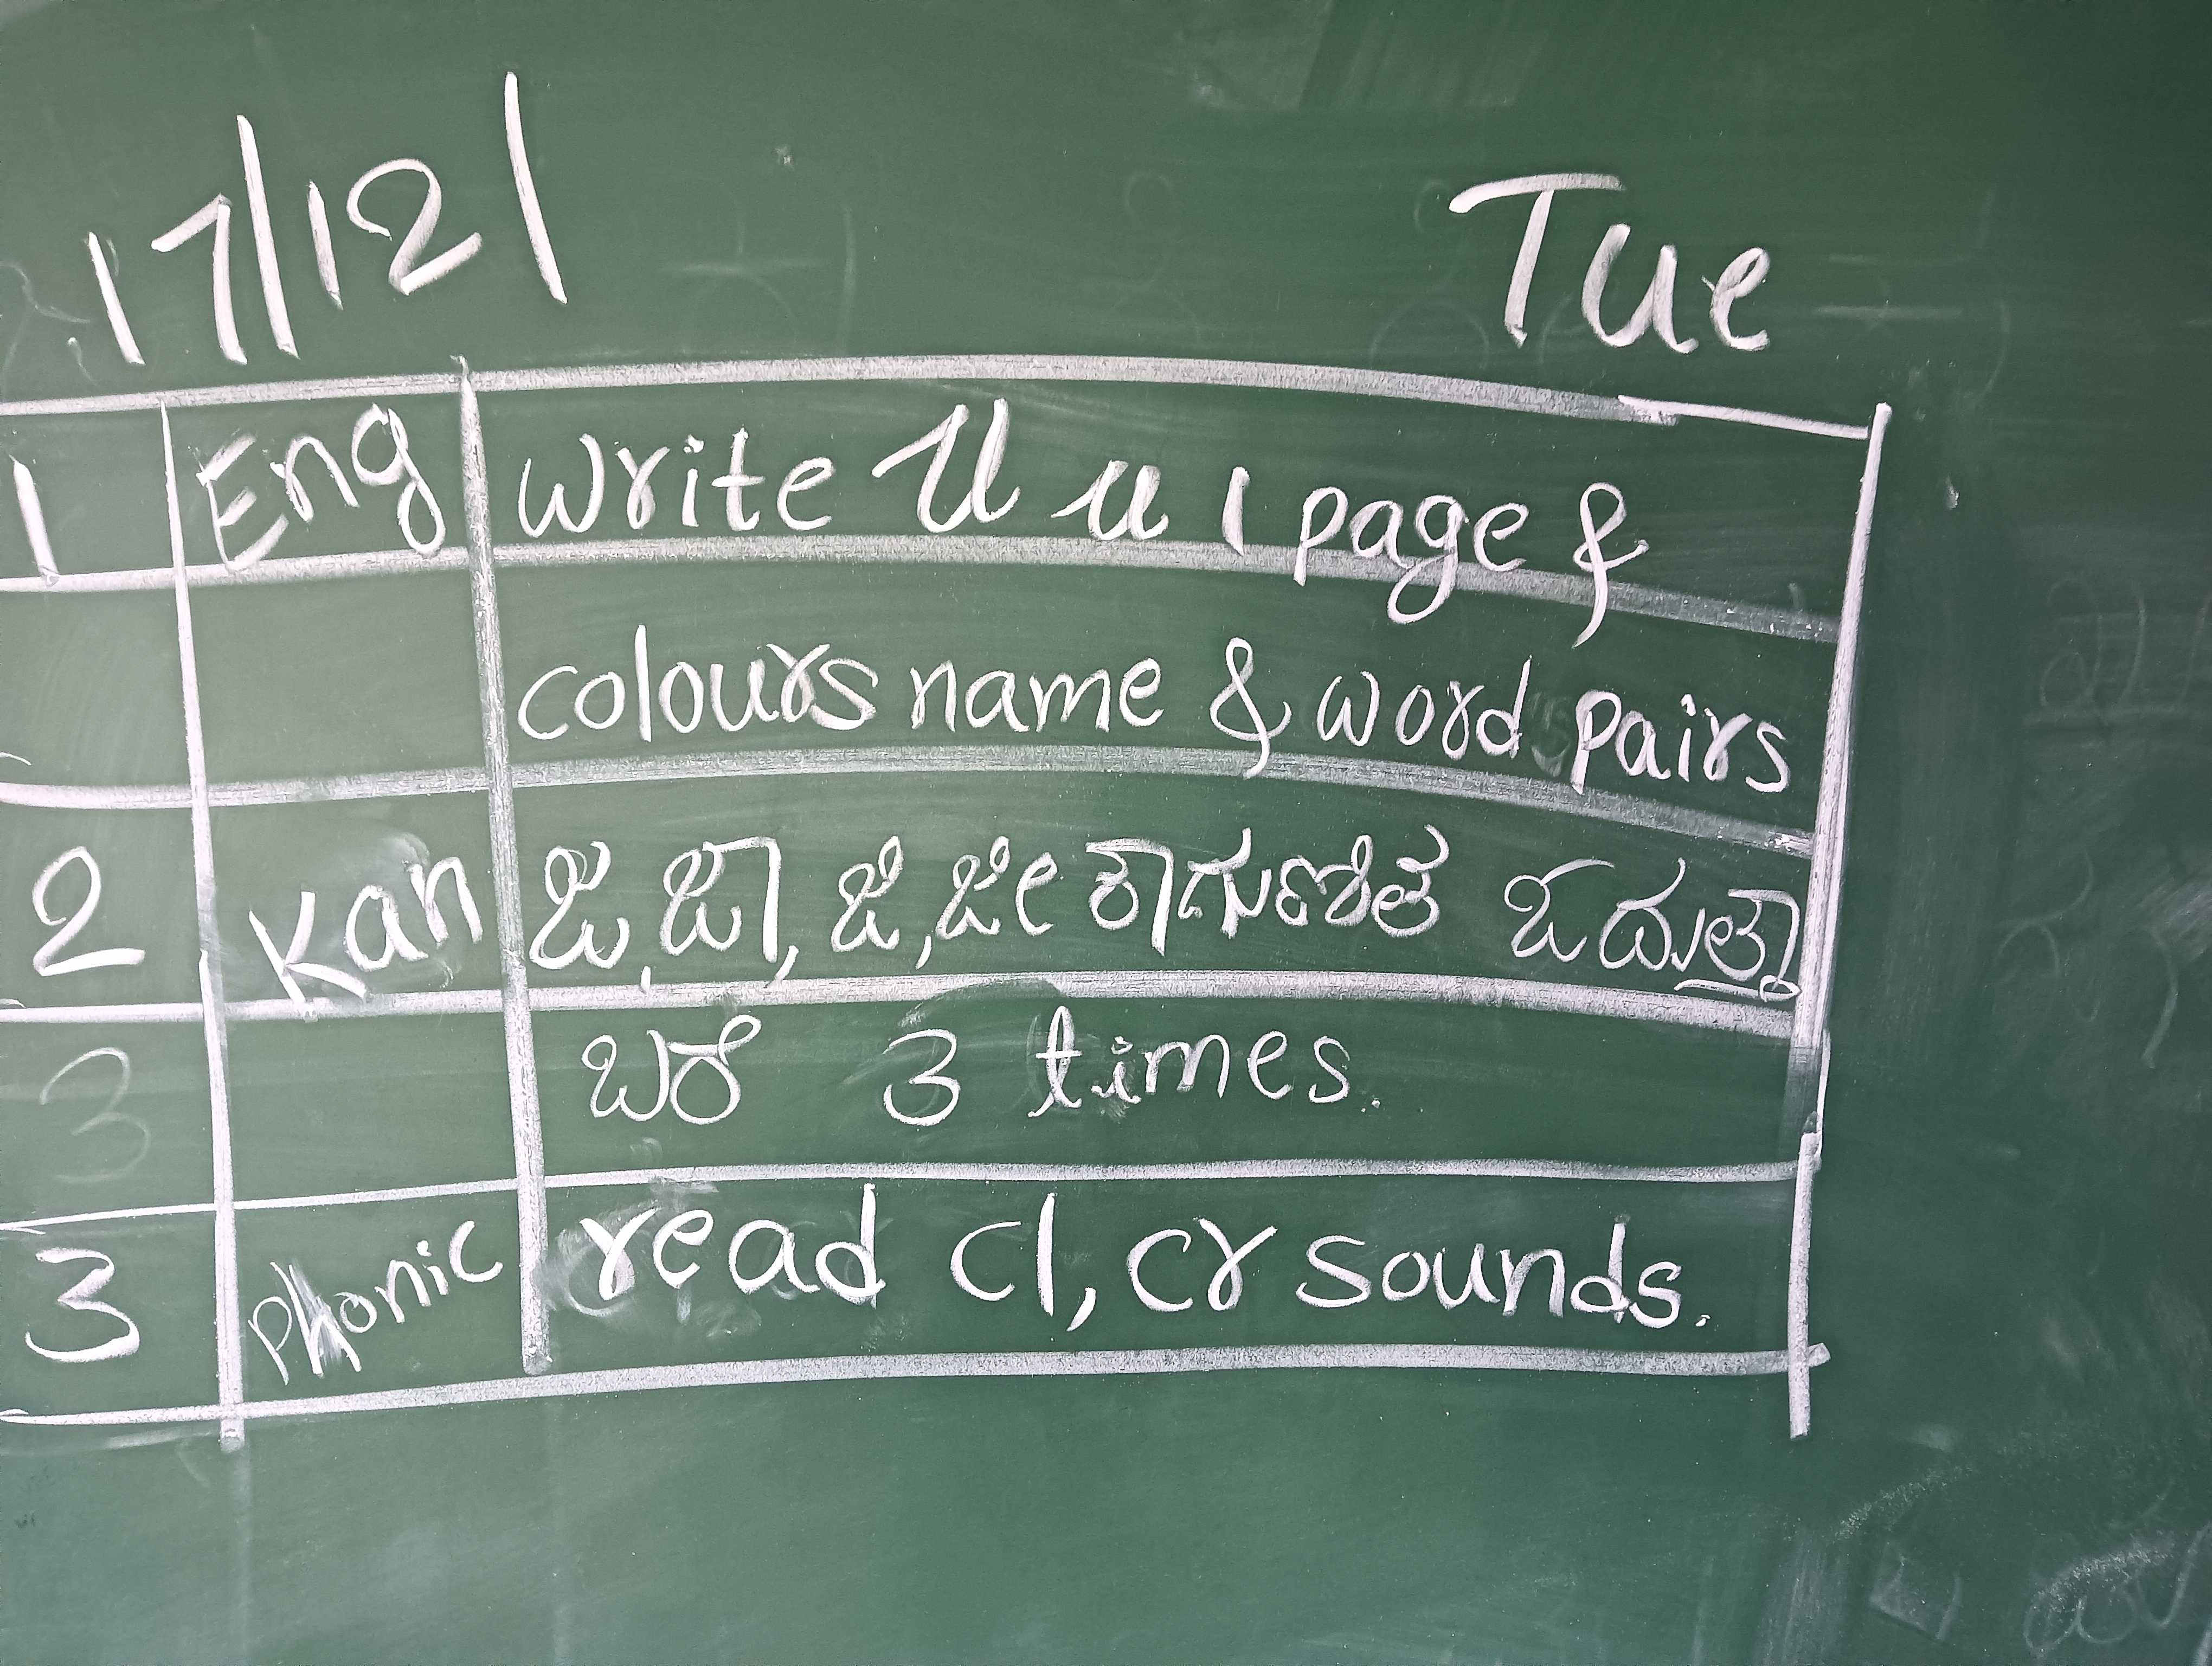 17/12/ Tue
1 Eng Write U u 1 page &
colours name & word pairs
2 Kan ಜ, ಜಾ, ಜಿ, ಜೀ ಕಾಗುಣಿತ ಓದುತ್ತಾ
3 ಬರೆ 3 times.
3 Phonic read cl, cr sounds.